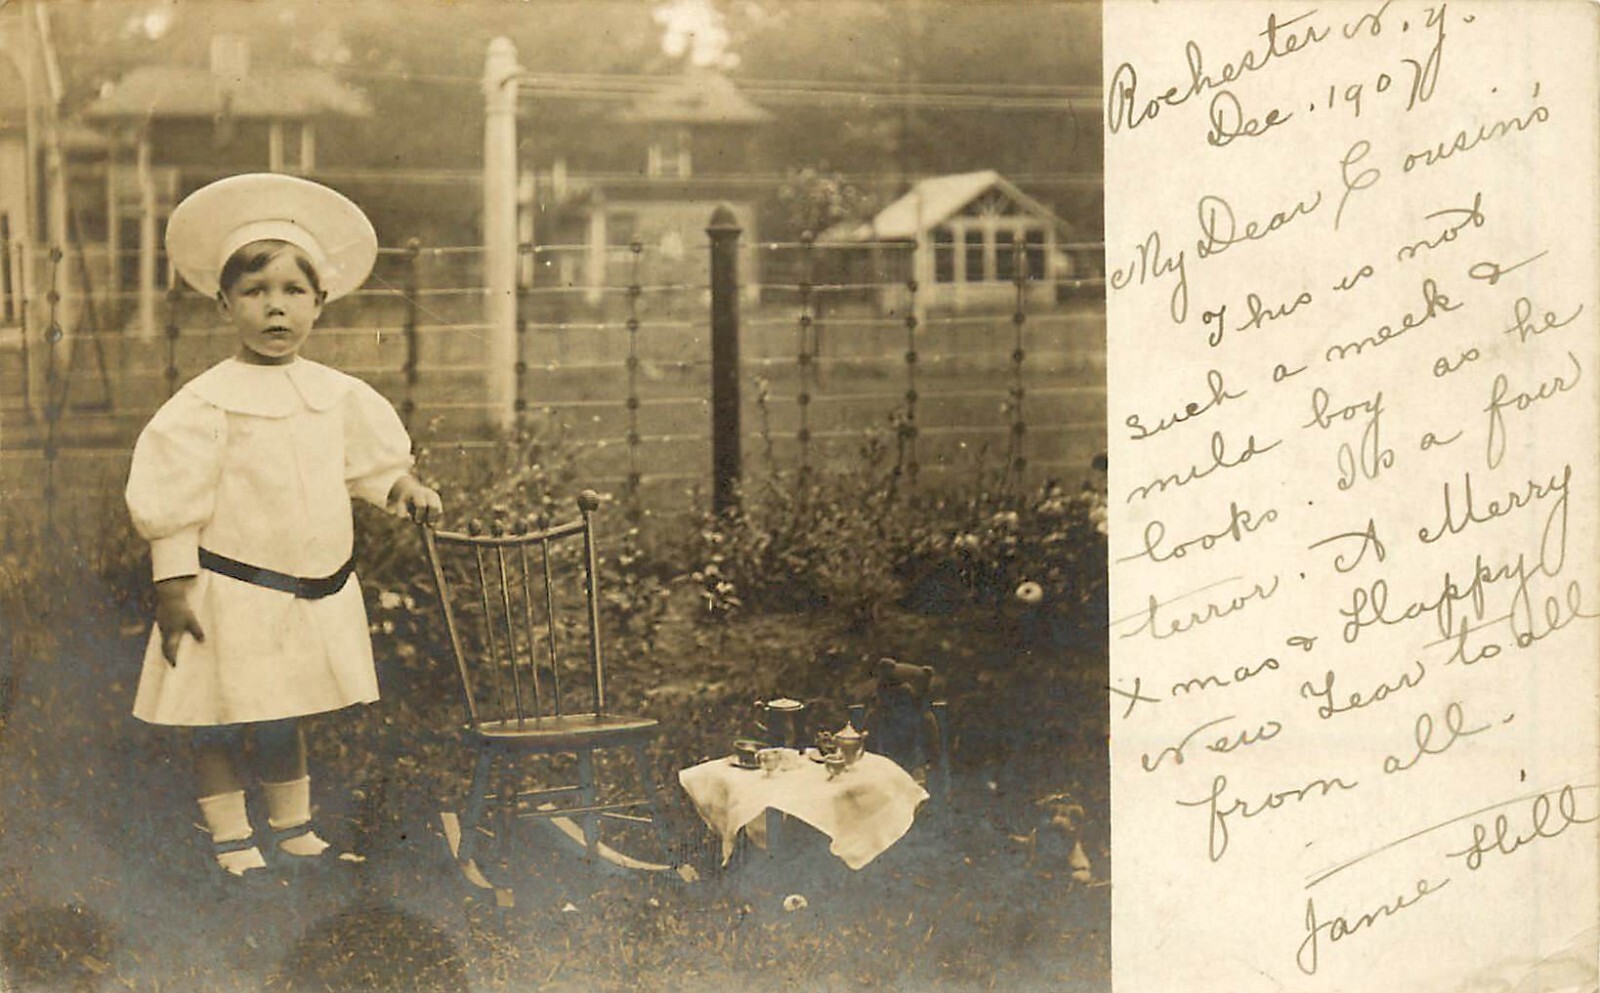 Rochester N.Y.
Dec. 1907
My Dear Cousin's
This is not
such a meek &
mild boy as he
looks. Is a four
terror. A Merry
Xmas & Happy
New Year to all
from all.
Janie Hill